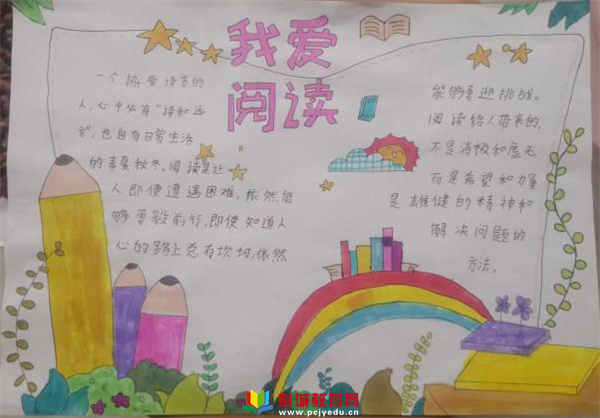 我爱
阅读
一个热爱读书的
人,心中必有“诗和远
方”,也自有日常生活
的春夏秋冬。阅读是让
人即便遭遇困难,依然能
够勇毅前行,即使知道人
心的路上总有坎坷,依然
能够勇迎挑战。
阅读给人带来的,
不是消极和虚无
而是希望和力量
是雄健的精神和
解决问题的
方法。
www.pcjyedu.cn